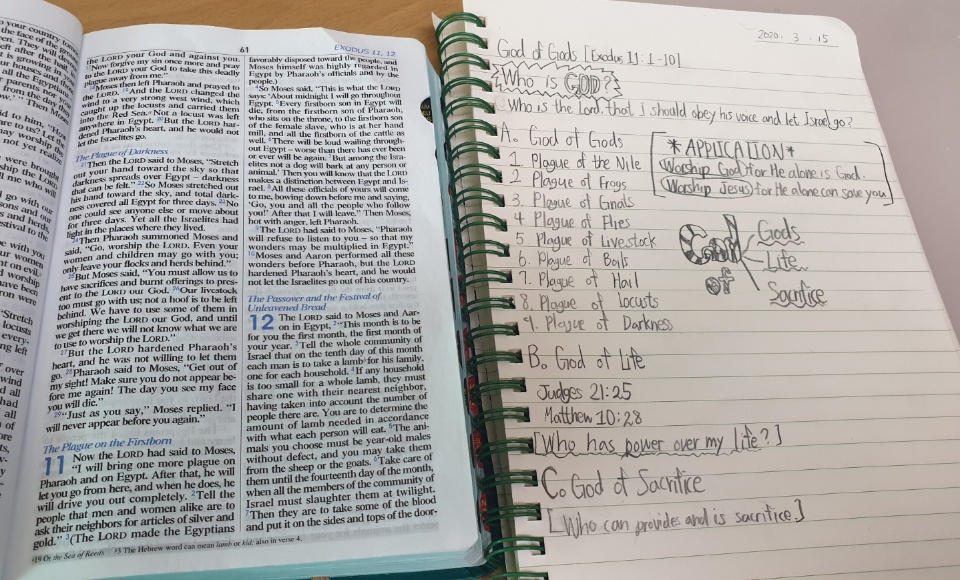 61
EXODUS 11, 12
the LORD your God and against you.
Now forgive my sin once more and pray
to the LORD your God to take this deadly
plague away from me."
Moses then left Pharaoh and prayed to
the LORD. And the LORD changed the
wind to a very strong west wind, which
caught up the locusts and carried them
into the Red Sea. Not a locust was left
anywhere in Egypt. 20But the LORD har-
dened Pharaoh's heart, and he would not
let the Israelites go.
The Plague of Darkness
Then the LORD said to Moses, "Stretch
out your hand toward the sky so that
darkness spreads over Egypt – darkness
that can be felt." 22So Moses stretched out
his hand toward the sky, and total dark-
ness covered all Egypt for three days. 23No
one could see anyone else or move about
for three days. Yet all the Israelites had
light in the places where they lived.
24Then Pharaoh summoned Moses and
said, "Go, worship the LORD. Even your
women and children may go with you;
only leave your flocks and herds behind."
25But Moses said, "You must allow us to
have sacrifices and burnt offerings to pres-
ent to the LORD our God. 26Our livestock
too must go with us; not a hoof is to be left
behind. We have to use some of them in
worshiping the LORD our God, and until
we get there we will not know what we are
to use to worship the LORD."
27But the LORD hardened Pharaoh's
heart, and he was not willing to let them
go. 28Pharaoh said to Moses, "Get out of
my sight! Make sure you do not appear be-
fore me again! The day you see my face
you will die."
29"Just as you say," Moses replied. "I
will never appear before you again."
The Plague on the Firstborn
11 Now the LORD had said to Moses,
"I will bring one more plague on
Pharaoh and on Egypt. After that, he will
let you go from here, and when he does, he
will drive you out completely. 2Tell the
people that men and women alike are to
ask their neighbors for articles of silver and
gold." 3(The LORD made the Egyptians
favorably disposed toward the people, and
Moses himself was highly regarded in
Egypt by Pharaoh's officials and by the
people.)
4So Moses said, "This is what the LORD
says: 'About midnight I will go throughout
Egypt. 5Every firstborn son in Egypt will
die, from the firstborn son of Pharaoh,
who sits on the throne, to the firstborn son
of the female slave, who is at her hand
mill, and all the firstborn of the cattle as
well. 6There will be loud wailing through-
out Egypt – worse than there has ever been
or ever will be again. 7But among the Isra-
elites not a dog will bark at any person or
animal.' Then you will know that the LORD
makes a distinction between Egypt and Is-
rael. 8All these officials of yours will come
to me, bowing down before me and saying,
'Go, you and all the people who follow
you!' After that I will leave." Then Moses,
hot with anger, left Pharaoh.
9The LORD had said to Moses, "Pharaoh
will refuse to listen to you – so that my
wonders may be multiplied in Egypt."
10Moses and Aaron performed all these
wonders before Pharaoh, but the LORD
hardened Pharaoh's heart, and he would
not let the Israelites go out of his country.
The Passover and the Festival of
Unleavened Bread
12 The LORD said to Moses and Aar-
on in Egypt, 2"This month is to be
for you the first month, the first month of
your year. 3Tell the whole community of
Israel that on the tenth day of this month
each man is to take a lamb for his family,
one for each household. 4If any household
is too small for a whole lamb, they must
share one with their nearest neighbor,
having taken into account the number of
people there are. You are to determine the
amount of lamb needed in accordance
with what each person will eat. 5The ani-
mals you choose must be year-old males
without defect, and you may take them
from the sheep or the goats. 6Take care of
them until the fourteenth day of the month,
when all the members of the community of
Israel must slaughter them at twilight.
7Then they are to take some of the blood
and put it on the sides and tops of the door-
19 Or the Sea of Reeds 3 The Hebrew word can mean lamb or kid; also in verse 4.
2020. 3. 15
God of Gods [Exodus 11:1-10]
Who is GOD?
Who is the Lord, that I should obey his voice and let Israel go?
A. God of Gods
1. Plague of the Nile
2 Plague of Frogs
3. Plague of Gnats
4 Plague of Flies
5. Plague of Livestock
6. Plague of Boils
7. Plague of Hail
8. Plague of Locusts
9. Plague of Darkness
*APPLICATION*
Worship God for He alone is God.
Worship Jesus for He alone can save you
God
of
Gods
Life
Sacrifice
B. God of Life
Judges 21:25
Matthew 10:28
[Who has power over my life?]
C. God of Sacrifice
[Who can provides and is sacrifice.]